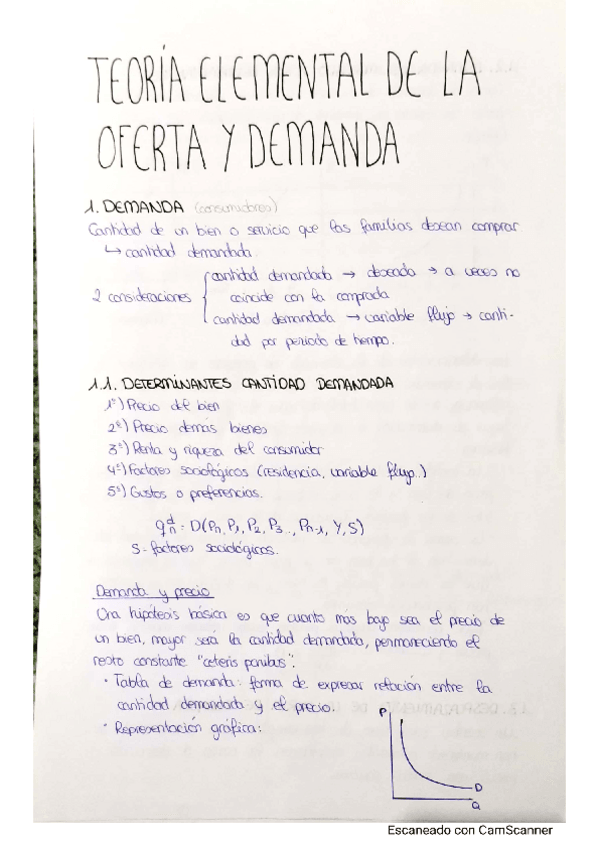 TEORÍA ELEMENTAL DE LA
OFERTA Y DEMANDA
1. DEMANDA (consumidores)
Cantidad de un bien o servicio que las familias desean comprar
↳ cantidad demandada
cantidad demandada → deseada → a veces no
2 consideraciones coincide con la comprada
cantidad demandada → variable flujo → canti-
dad por periodo de tiempo.
1.1. DETERMINANTES CANTIDAD DEMANDADA
1º) Precio del bien
2º) Precio demás bienes
3º) Renta y riqueza del consumidor
4º) Factores sociológicos (residencia, variable flujo..)
5º) Gustos o preferencias.
qdn = D(Pn, P1, P2, P3..., Pn-1, Y, S)
S - factores sociológicos.
Demanda y precio
Una hipótesis básica es que cuanto más bajo sea el precio de
un bien, mayor será la cantidad demandada, permaneciendo el
resto constante "ceteris paribus".
· Tabla de demanda: forma de expresar relación entre la
cantidad demandada y el precio.
· Representación gráfica:
P
D
Q
Escaneado con CamScanner